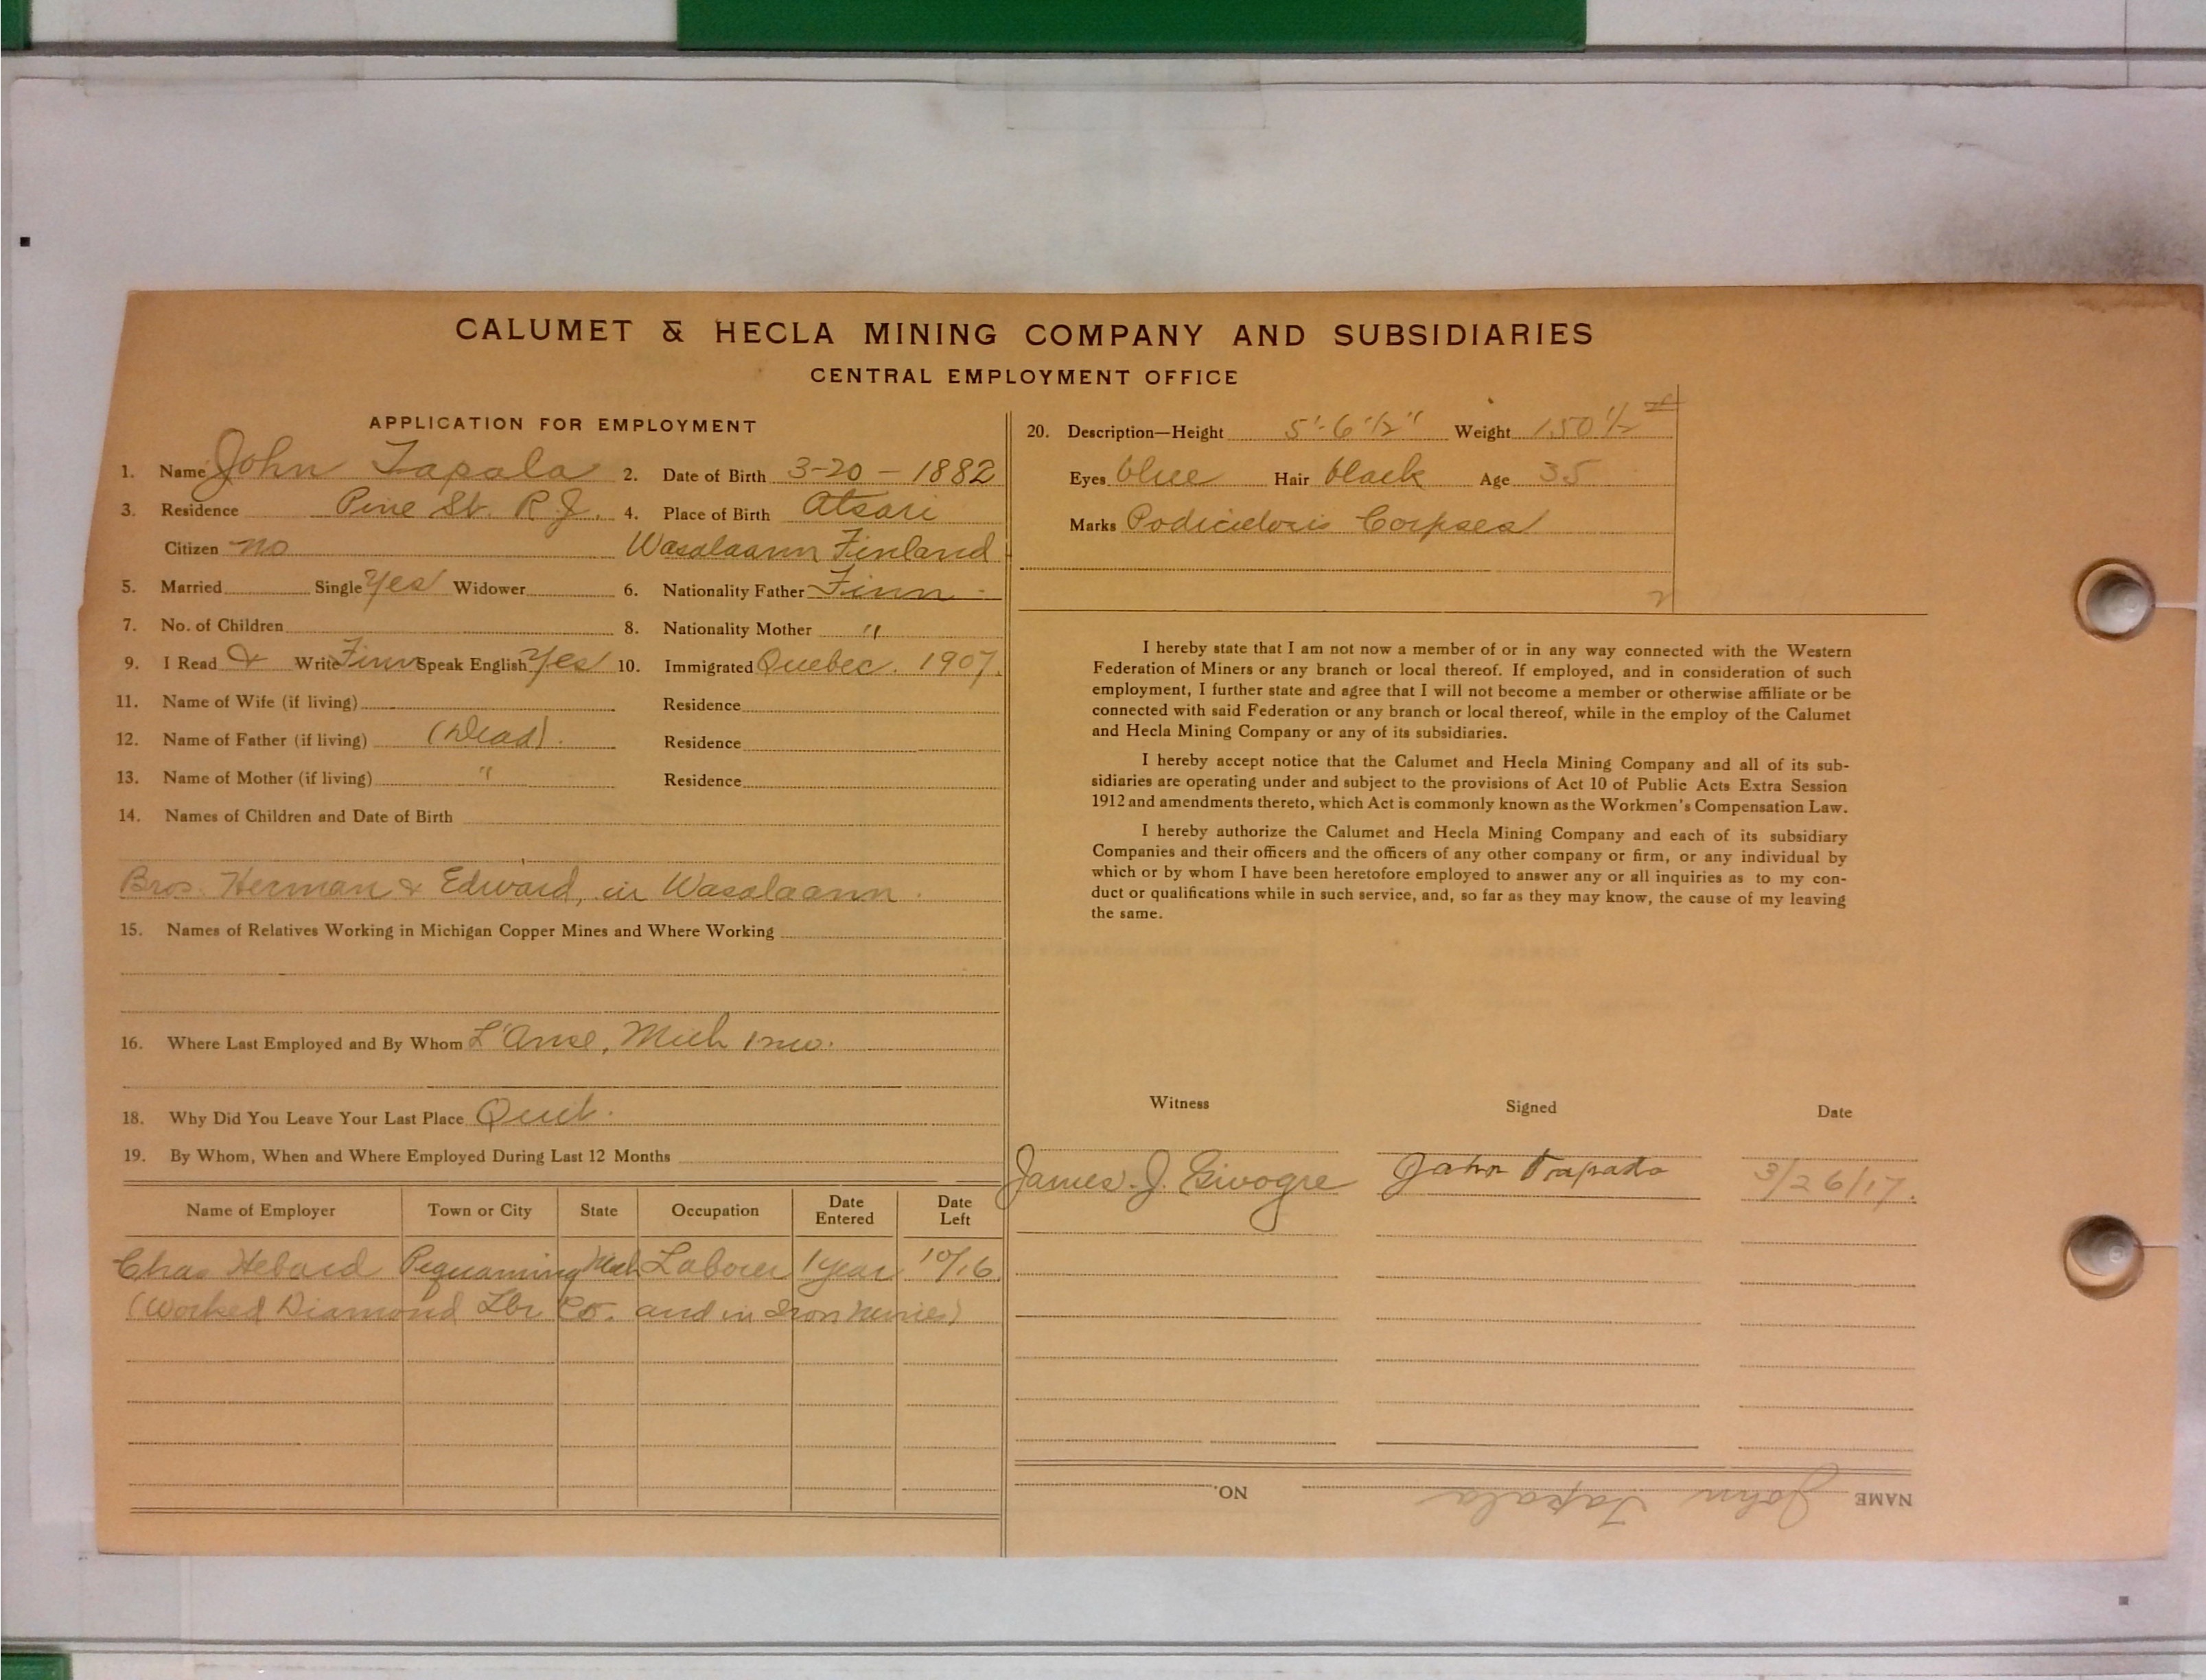 CALUMET & HECLA MINING COMPANY AND SUBSIDIARIES
CENTRAL EMPLOYMENT OFFICE
APPLICATION FOR EMPLOYMENT
1. Name John Tapala 2. Date of Birth 3-20-1882
3. Residence Pine St. R.J. 4. Place of Birth Atsari
Citizen no Wasalaann Finland
5. Married Single Yes Widower 6. Nationality Father Finn
7. No. of Children 8. Nationality Mother "
9. I Read & Write Finn Speak English Yes 10. Immigrated Quebec. 1907.
11. Name of Wife (if living) Residence
12. Name of Father (if living) (Dead). Residence
13. Name of Mother (if living) " Residence
14. Names of Children and Date of Birth
Bros. Herman & Edward, in Wasalaann.
15. Names of Relatives Working in Michigan Copper Mines and Where Working
16. Where Last Employed and By Whom L'Anse, Mich 1 mo.
18. Why Did You Leave Your Last Place Quit.
19. By Whom, When and Where Employed During Last 12 Months
Name of Employer Town or City State Occupation Date Entered Date Left
Chas Hebard Pequaming Mich Laborer 1 year 10/16
(Worked Diamond Lbr Co. and in Iron Mines)
20. Description—Height 5'-6 1/2" Weight 150 1/2
Eyes blue Hair black Age 35
Marks Corpses
I hereby state that I am not now a member of or in any way connected with the Western
Federation of Miners or any branch or local thereof. If employed, and in consideration of such
employment, I further state and agree that I will not become a member or otherwise affiliate or be
connected with said Federation or any branch or local thereof, while in the employ of the Calumet
and Hecla Mining Company or any of its subsidiaries.
I hereby accept notice that the Calumet and Hecla Mining Company and all of its sub-
sidiaries are operating under and subject to the provisions of Act 10 of Public Acts Extra Session
1912 and amendments thereto, which Act is commonly known as the Workmen's Compensation Law.
I hereby authorize the Calumet and Hecla Mining Company and each of its subsidiary
Companies and their officers and the officers of any other company or firm, or any individual by
which or by whom I have been heretofore employed to answer any or all inquiries as to my con-
duct or qualifications while in such service, and, so far as they may know, the cause of my leaving
the same.
Witness Signed Date
James. J. John 3/26/17.
NAME John Tapala NO.